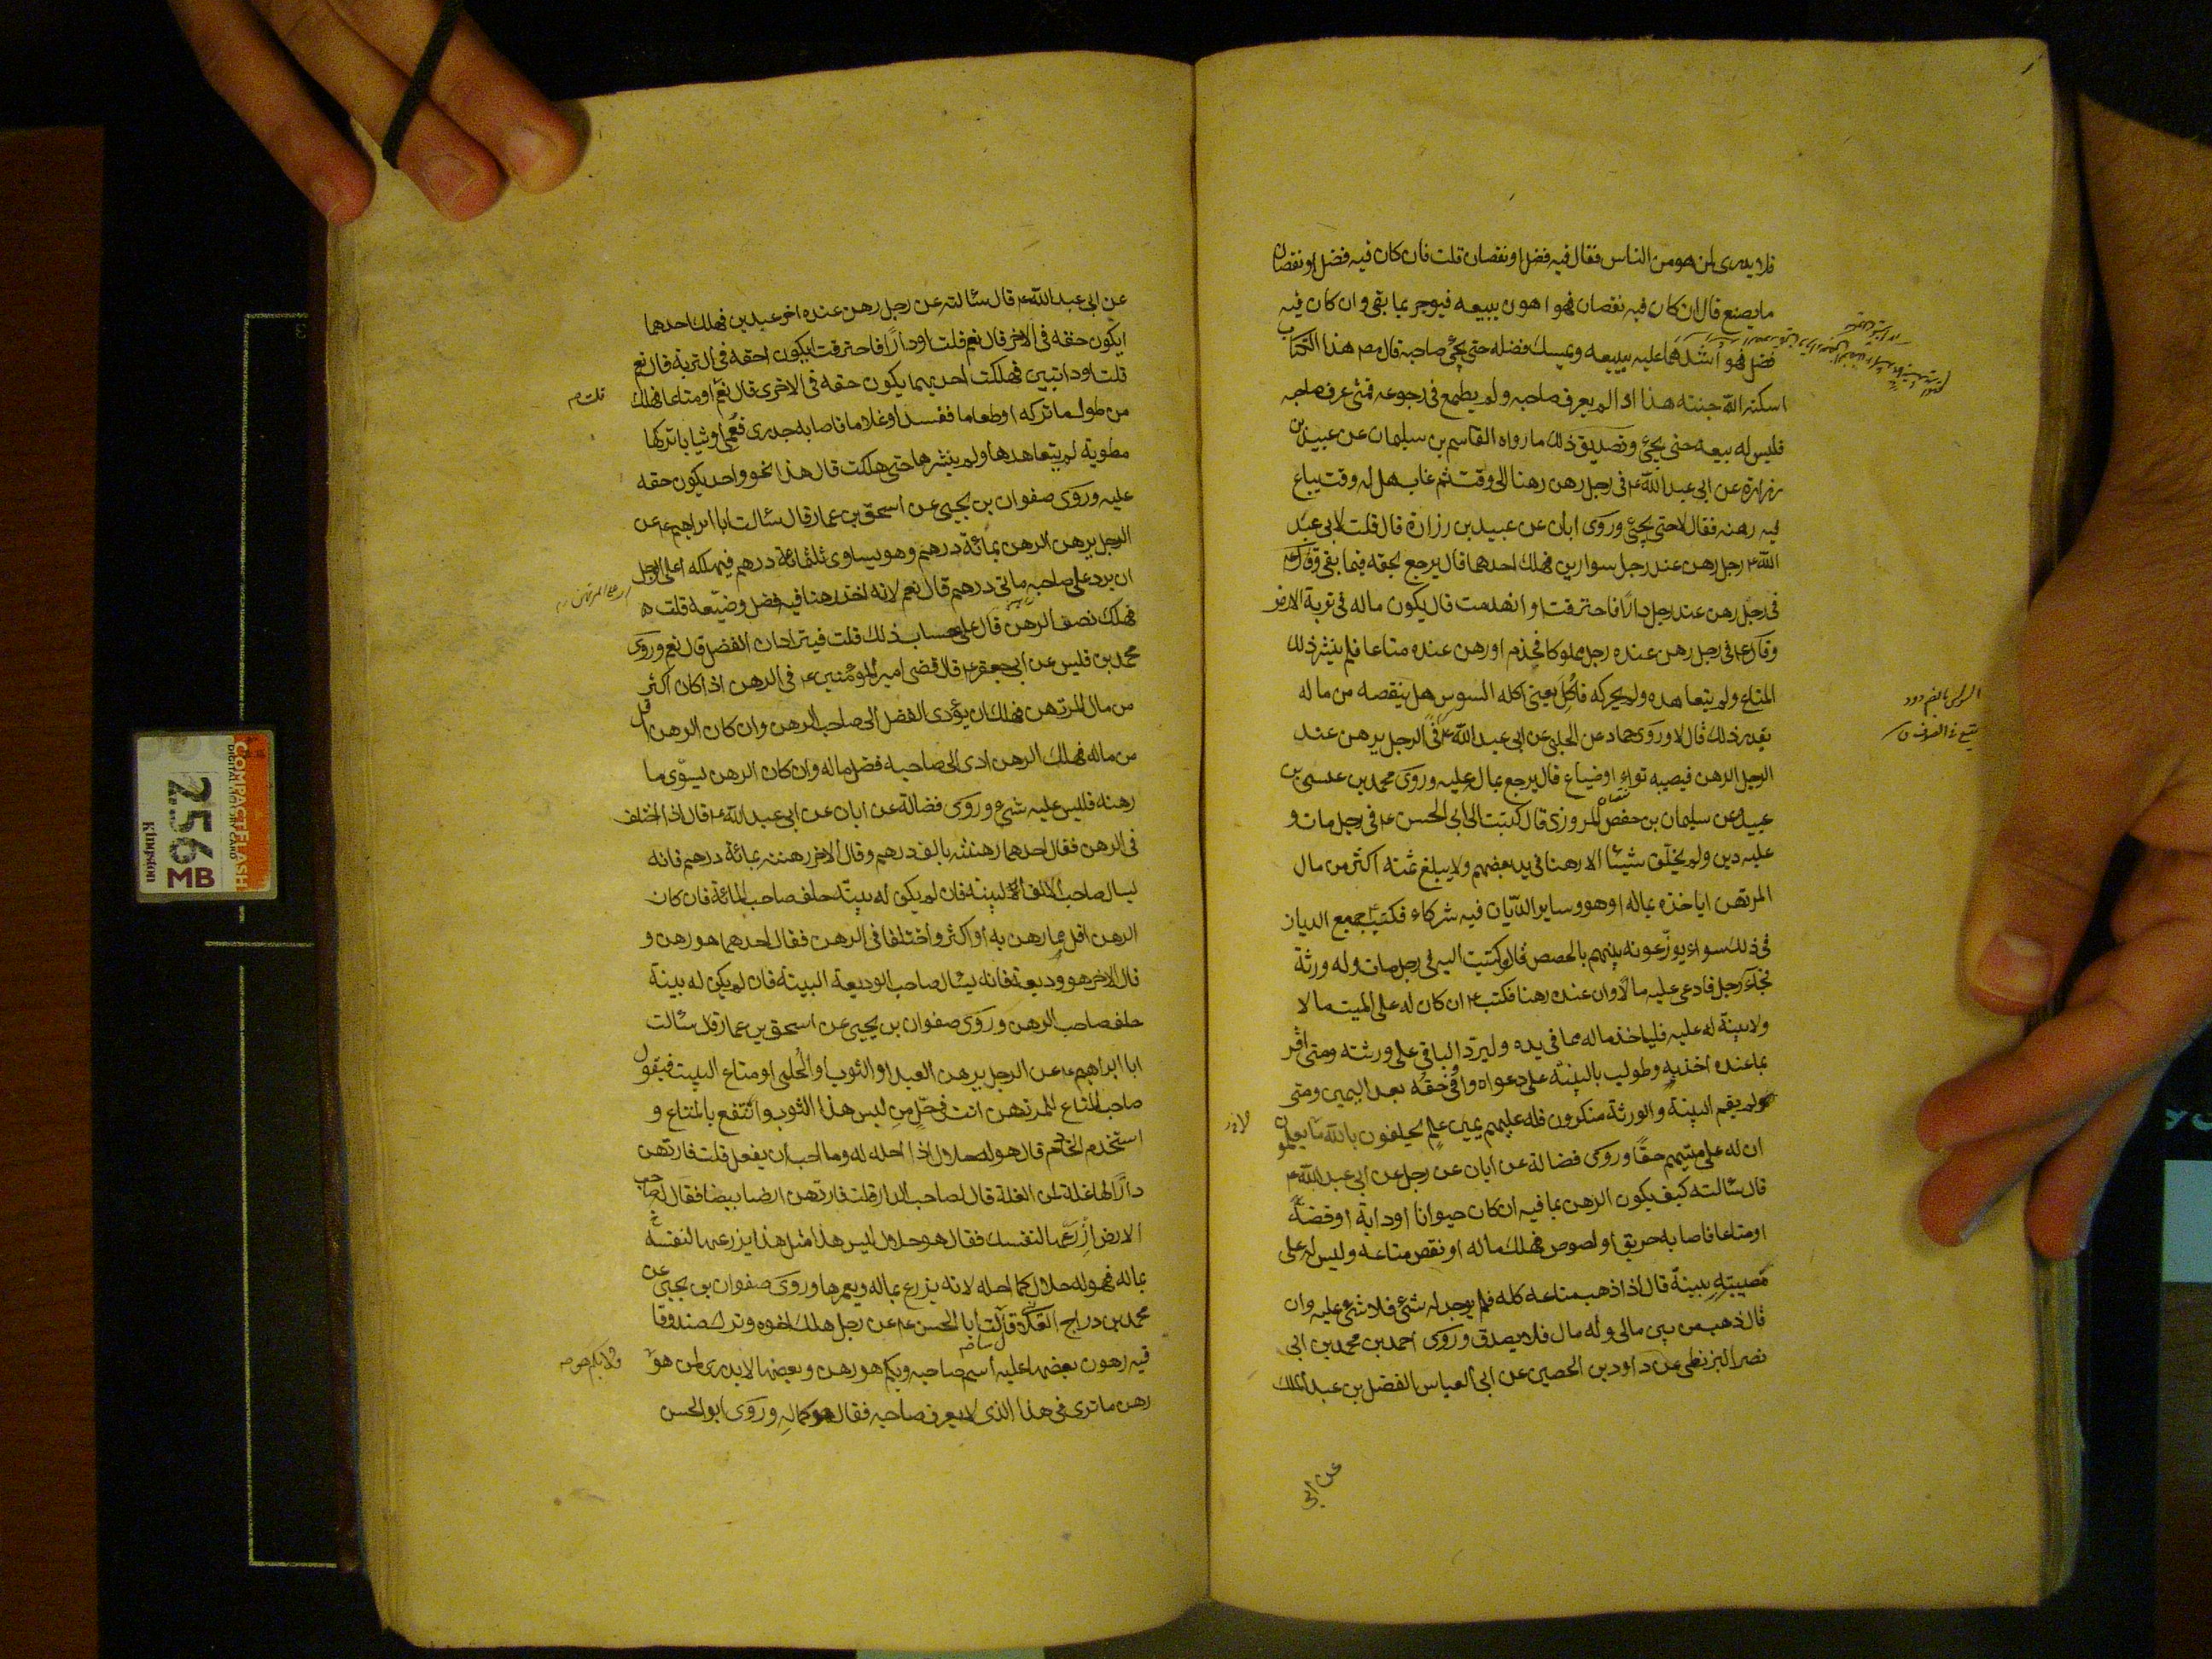 فلا يدرى لمن هو من الناس فقال فيه فضل او نقصان قلت فان كان فيه فضل او نقصان
ما يصنع قال ان كان فيه نقصان فهو اهون يبيعه فيوجر بما بقى وان كان فيه
فضل فهو اشدهما عليه يبيعه ويمسك فضله حتى يجئ صاحبه قال مص هذا الكتاب
اسكنه الله جنته هذا اذا لم يعرف صاحبه ولم يطمع فى رجوعه فمتى عرف صاحبه
فليس له بيعه حتى يجئ وتصديق ذلك ما رواه القاسم بن سليمان عن عبيد بن
زرارة عن ابى عبد الله ع فى رجل رهن رهنا الى وقت ثم غاب هل له وقت يباع
فيه رهنه فقال لا حتى يجئ وروى ابان عن عبيد بن زرارة قال قلت لابى عبد
الله ع رجل رهن عند رجل سوارين فهلك احدهما قال يرجع بحقه فيما بقى وقال ع
فى رجل رهن عند رجل دارًا فاحترقت او انهدمت قال يكون ماله فى تربة الارض
وقال ع فى رجل رهن عنده رجل مملوكا فجذم او رهن عنده متاعا فلم ينشر ذلك
المتاع ولم يتعاهده ولم يحركه فاُكل يعنى اكله السوس هل ينقصه من ماله
بقدر ذلك قال لا وروى حماد عن الحلبى عن ابى عبد الله ع فى الرجل يرهن عند
الرجل الرهن فيصيبه تواء او ضياع قال يرجع بماله عليه وروى محمد بن عيسى بن
عبيد عن سليمان بن حفص المروزى قال كتبت الى ابى الحسن ع فى رجل مات و
عليه دين ولم يخلّف شيئا الا رهنا فى يد بعضهم ولا يبلغ ثمنه اكثر من مال
المرتهن اياخذه بماله او هو وساير الدّيان فيه شركاء فكتب ع جميع الديان
فى ذلك سواء يوزّعونه بينهم بالحصص قال وكتبت اليه فى رجل مات وله ورثة
فجاء رجل فادعى عليه مالا وان عنده رهنا فكتب ع ان كان له على الميت مالا
ولا بينة له عليه فلياخذ ماله مما فى يده وليرد الباقى على ورثته ومتى اقر
بما عنده اخذ به وطولب بالبيّنة على دعواه واوفى حقه بعد اليمين ومتى
لم يقم البينة والورثة منكرون فله عليهم يمين علم يحلفون بالله ما يعلمون
ان له على ميتهم حقًا وروى فضالة عن ابان عن رجل عن ابى عبد الله ع
قال سئالته كيف يكون الرهن بما فيه ان كان حيوانا او دابة او فضة
او متاعا فاصابه حريق او لصوص فهلك ماله او نقص متاعه وليس له على
مصيبته بينة قال اذا ذهب متاعه كله فلم يوجد له شئ فلا شئ عليه وان
قال ذهب من بين مالى وله مال فلا يصدق وروى احمد بن محمد بن ابى
نصر البزنطى عن داود بن الحصين عن ابى العباس الفضل بن عبد الملك
عن ابى
عن ابى عبد الله ع قال سئالته عن رجل رهن عنده اخر عبدين فهلك احدهما
ايكون حقه فى الاخر قال نعم قلت او دارًا فاحترقت ايكون احقه فى التربة قال نعم
قلت او دابتين فهلكت احديهما يكون حقه فى الاخرى قال نعم او متاعا فهلك
من طول ما تركه او طعاما ففسد او غلاما فاصابه جدرى فعُمى او ثيابا تركها
مطوية لم يتعاهدها ولم ينشرها حتى هلكت قال هذا نحو واحد يكون حقه
عليه وروى صفوان بن يحيى عن اسحق بن عمار قال سئالت ابا ابراهيم ع عن
الرجل يرهن الرهن بمائة درهم وهو يساوى ثلثمائة درهم فيهلكه اعلى الرجل
ان يرد على صاحبه مأتى درهم قال نعم لانه اخذ رهنا فيه فضل وضيّعه قلت
فهلك نصف الرهن قال على حساب ذلك قلت فيترادان الفضل قال نعم وروى
محمد بن قيس عن ابى جعفر ع قال قضى امير المؤمنين ع فى الرهن اذا كان اكثر
من مال المرتهن فهلك ان يؤدى الفضل الى صاحب الرهن وان كان الرهن اقل
من ماله فهلك الرهن ادى الى صاحبه فضل ماله وان كان الرهن يسوّى ما
رهنه فليس عليه شئ وروى فضالة عن ابان عن ابى عبد الله ع قال اذا اختلف
فى الرهن فقال احدهما رهنته بالف درهم وقال الاخر رهنته بمائة درهم فانه
يسال صاحب الالف البينة فان لم يكن له بينة حلف صاحب المائة فان كان
الرهن اقل مما رهن به او اكثر واختلفا فى الرهن فقال احدهما هو رهن و
قال الاخر هو وديعة فانه يسئال صاحب الوديعة البينة فان لم يكن له بينة
حلف صاحب الرهن وروى صفوان بن يحيى عن اسحق بن عمار قال سئالت
ابا ابراهيم ع عن الرجل يرهن العبد او الثوب او الحُلى او متاع البيت فيقول
صاحب المتاع للمرتهن انت فى حلّ من لبس هذا الثوب وانتفع بالمتاع و
استخدم الخادم قال هو له حلال اذا احله له وما احب ان يفعل قلت فارتهن
دارًا لها غلة لمن الغلة قال لصاحب الدار قلت فارتهن ارضا بيضا فقال له صاحب
الارض ازرعها لنفسك فقال هو حلال ليس هذا مثل هذا يزرعها لنفسه
بماله فهو له حلال كما احله لانه يزرع بماله ويعمرها وروى صفوان بن يحيى عن
محمد بن رباح القلاء قال سالت ابا الحسن ع عن رجل هلك اخوه وترك صندوقا
فيه رهون بعضها عليه اسم صاحبه وبكم هو رهن وبعضها لا يدرى لمن هو
رهن ما ترى فى هذا الذى لا يعرف صاحبه فقال هو كماله وروى ابو الحسن
قلت
COMPACTFLASH
256 MB
Kingston